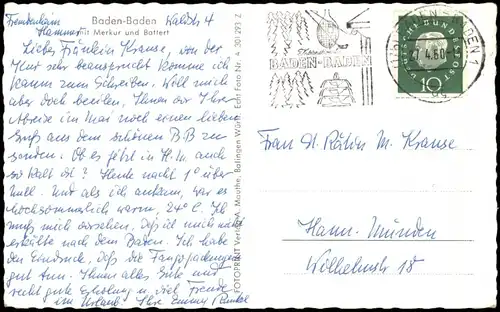 Fremdenheim Baden-Baden Waldstr 4
Hammer mit Merkur und Battert
Liebes Fräulein Krause, von der
Kur sehr beansprucht komme ich
kaum zum Schreiben. Will mich
aber doch beeilen, Ihnen vor Ihrer
Abreise im Mai noch einen lieben
Gruß aus dem schönen B.B zu
senden. Ob es jetzt in H.M. auch
so kalt ist? Heute nacht 1° über
null. Und als ich ankam, war es
hochsommerlich warm, 24° C. Ich
muß mich vorsehen, daß ich mich nicht
erkälte nach dem Baden. Ich habe
den Eindruck, daß die Fangopackungen
gut tun. Ihnen alles Gute und
recht gute Erholung u. viel Freude
im Urlaub. Ihre Emmy
FOTOPRINT Verlag A. Mauthe, Balingen Württ. Echt Foto Nr. 4. 30 293 Z
BADEN-BADEN
BADEN-BADEN 1
27.4.60
DEUTSCHE BUNDESPOST
10
Frau St. Rätin M. Krause
Hann.-Münden
Wilhelmstr 18